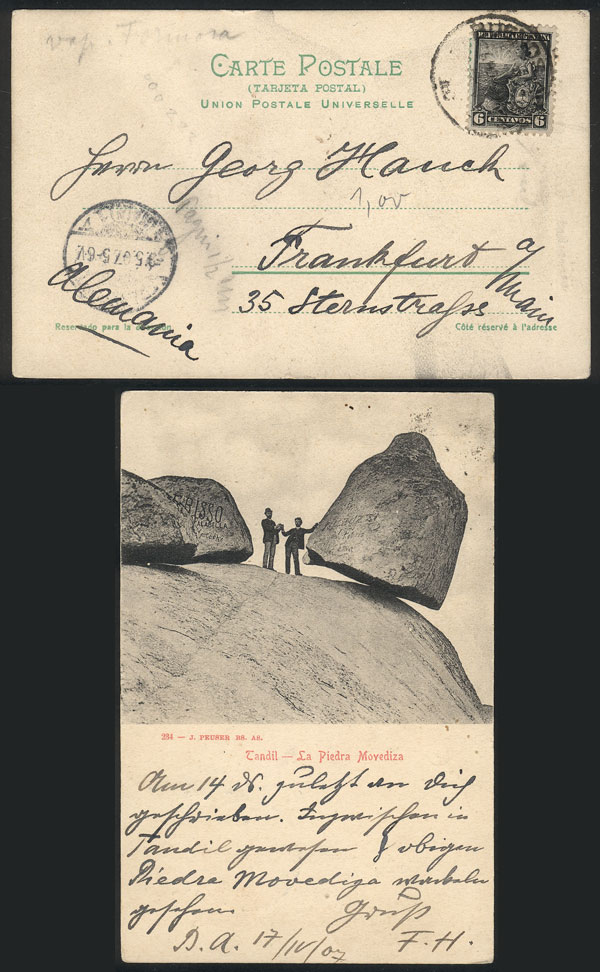 vap. Formosa
CARTE POSTALE
(TARJETA POSTAL)
UNION POSTALE UNIVERSELLE
REPUBLICA ARGENTINA
6 CENTAVOS 6
Herrn Georg Hauck
1,00
Frankfurt a/Main
35 Sternstrasse
Alemania
5.07.5-6
Reservado para la
Côté réservé à l'adresse
1880
284 — J. PEUSER BS. AS.
Tandil — La Piedra Movediza
Am 14 ds. zuletzt an Dich
geschrieben. Inzwischen in
Tandil gewesen & obigen
Piedra Movediza wackeln
gesehen. Gruß
B.A. 17/IV/07 F.H.